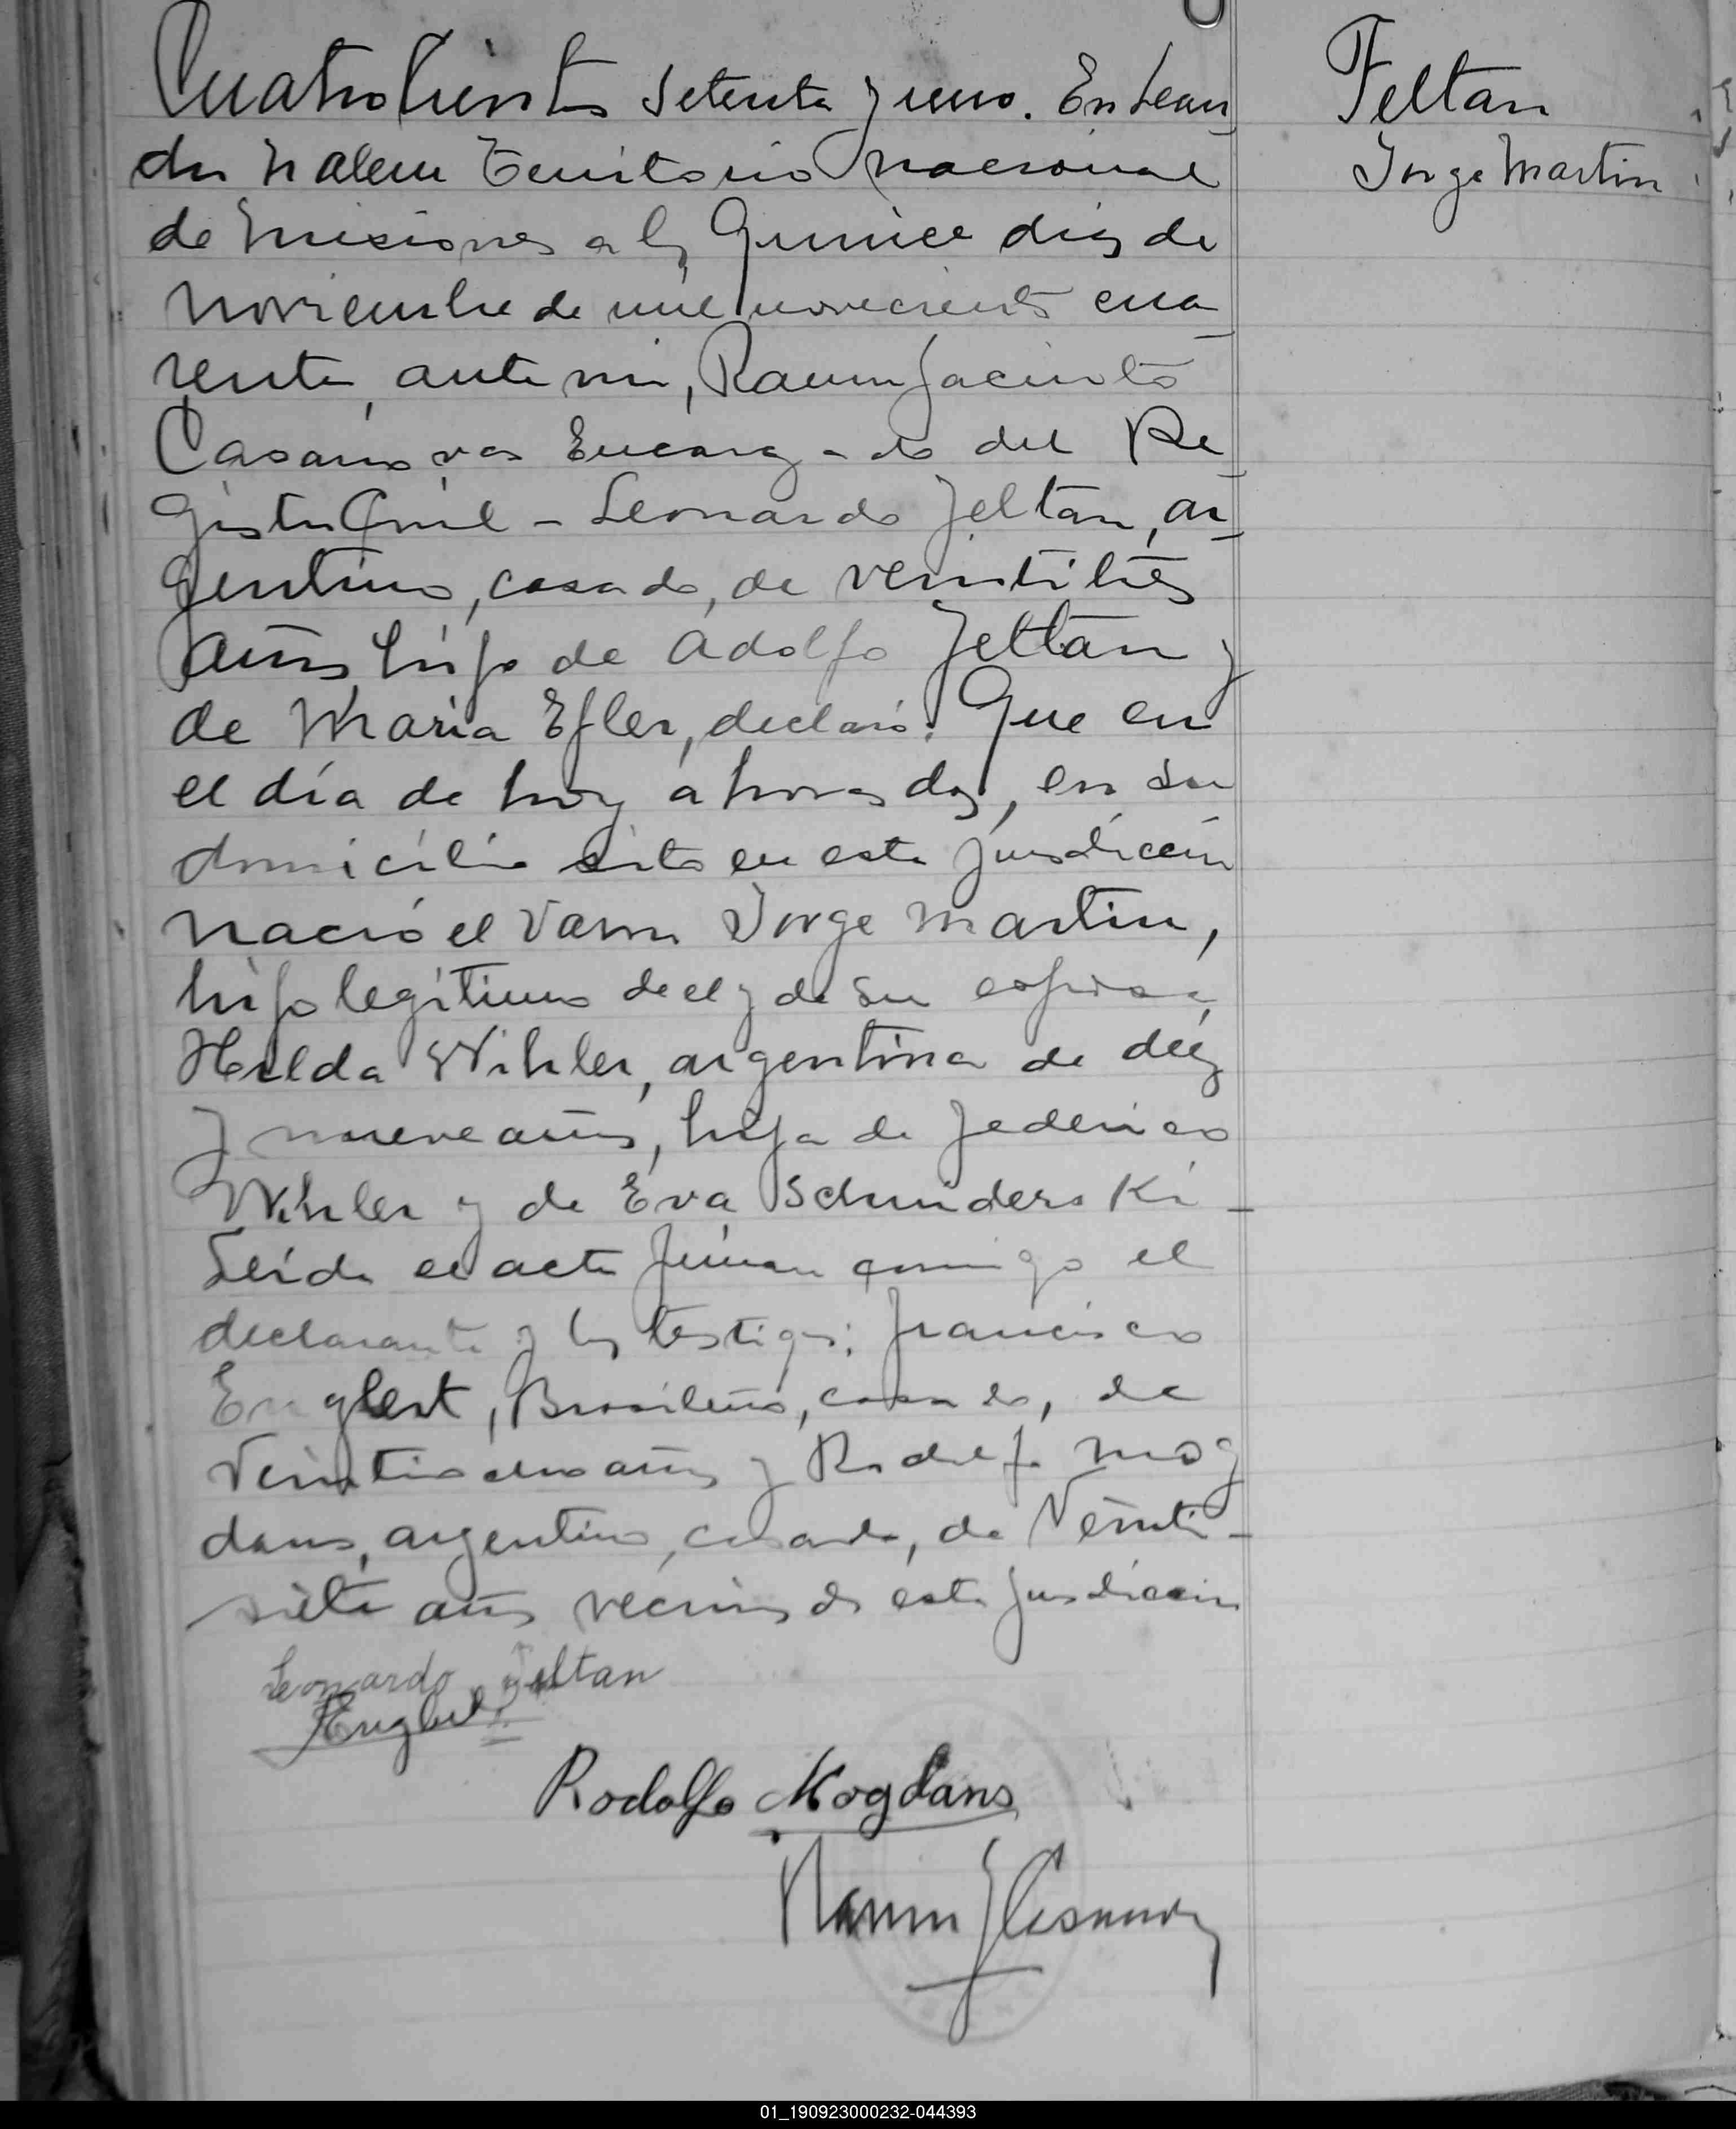 Cuatrocientos setenta y uno. En Lean
dro N Alem Territorio Nacional
de Misiones a los Quince dias de
noviembre de mil novecientos cua
renta, ante mi, Ramon Jacinto
Casanova Encargado del Re
gistro Civil - Leonardo Feltan, ar
gentino, casado, de veintitrés
años, hijo de Adolfo Feltan y
de Maria Efler, declaró: Que en
el día de hoy a horas dos, en su
domicilio sito en esta jurisdicción
nació el varon Jorge Martin,
hijo legítimo de el y de su esposa,
Hilda Wihler, argentina de diez
y nueve años, hija de Federico
Wihler y de Eva Schniderski -
Leída el acta firman conmigo el
declarante y los testigos: Francisco
Englert, Brasileño, casado, de
Veintiocho años y Rodolfo Mog
dans, argentino, casado, de Veinti-
siete años vecinos de esta jurisdiccion
Leonardo Feltan
Englert
Rodolfo Mogdans
Ramon J Casanova
Feltan
Jorge Martin
01_190923000232-044393